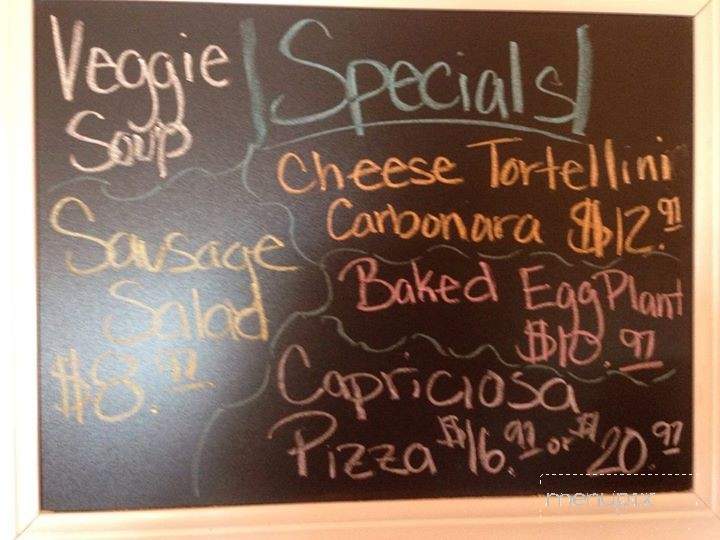 Veggie
Soup
Sausage
Salad
$8.97
Specials
Cheese Tortellini
Carbonara $12.97
Baked EggPlant
$10.97
Capriciosa
Pizza $16.97 or $20.97
menupix